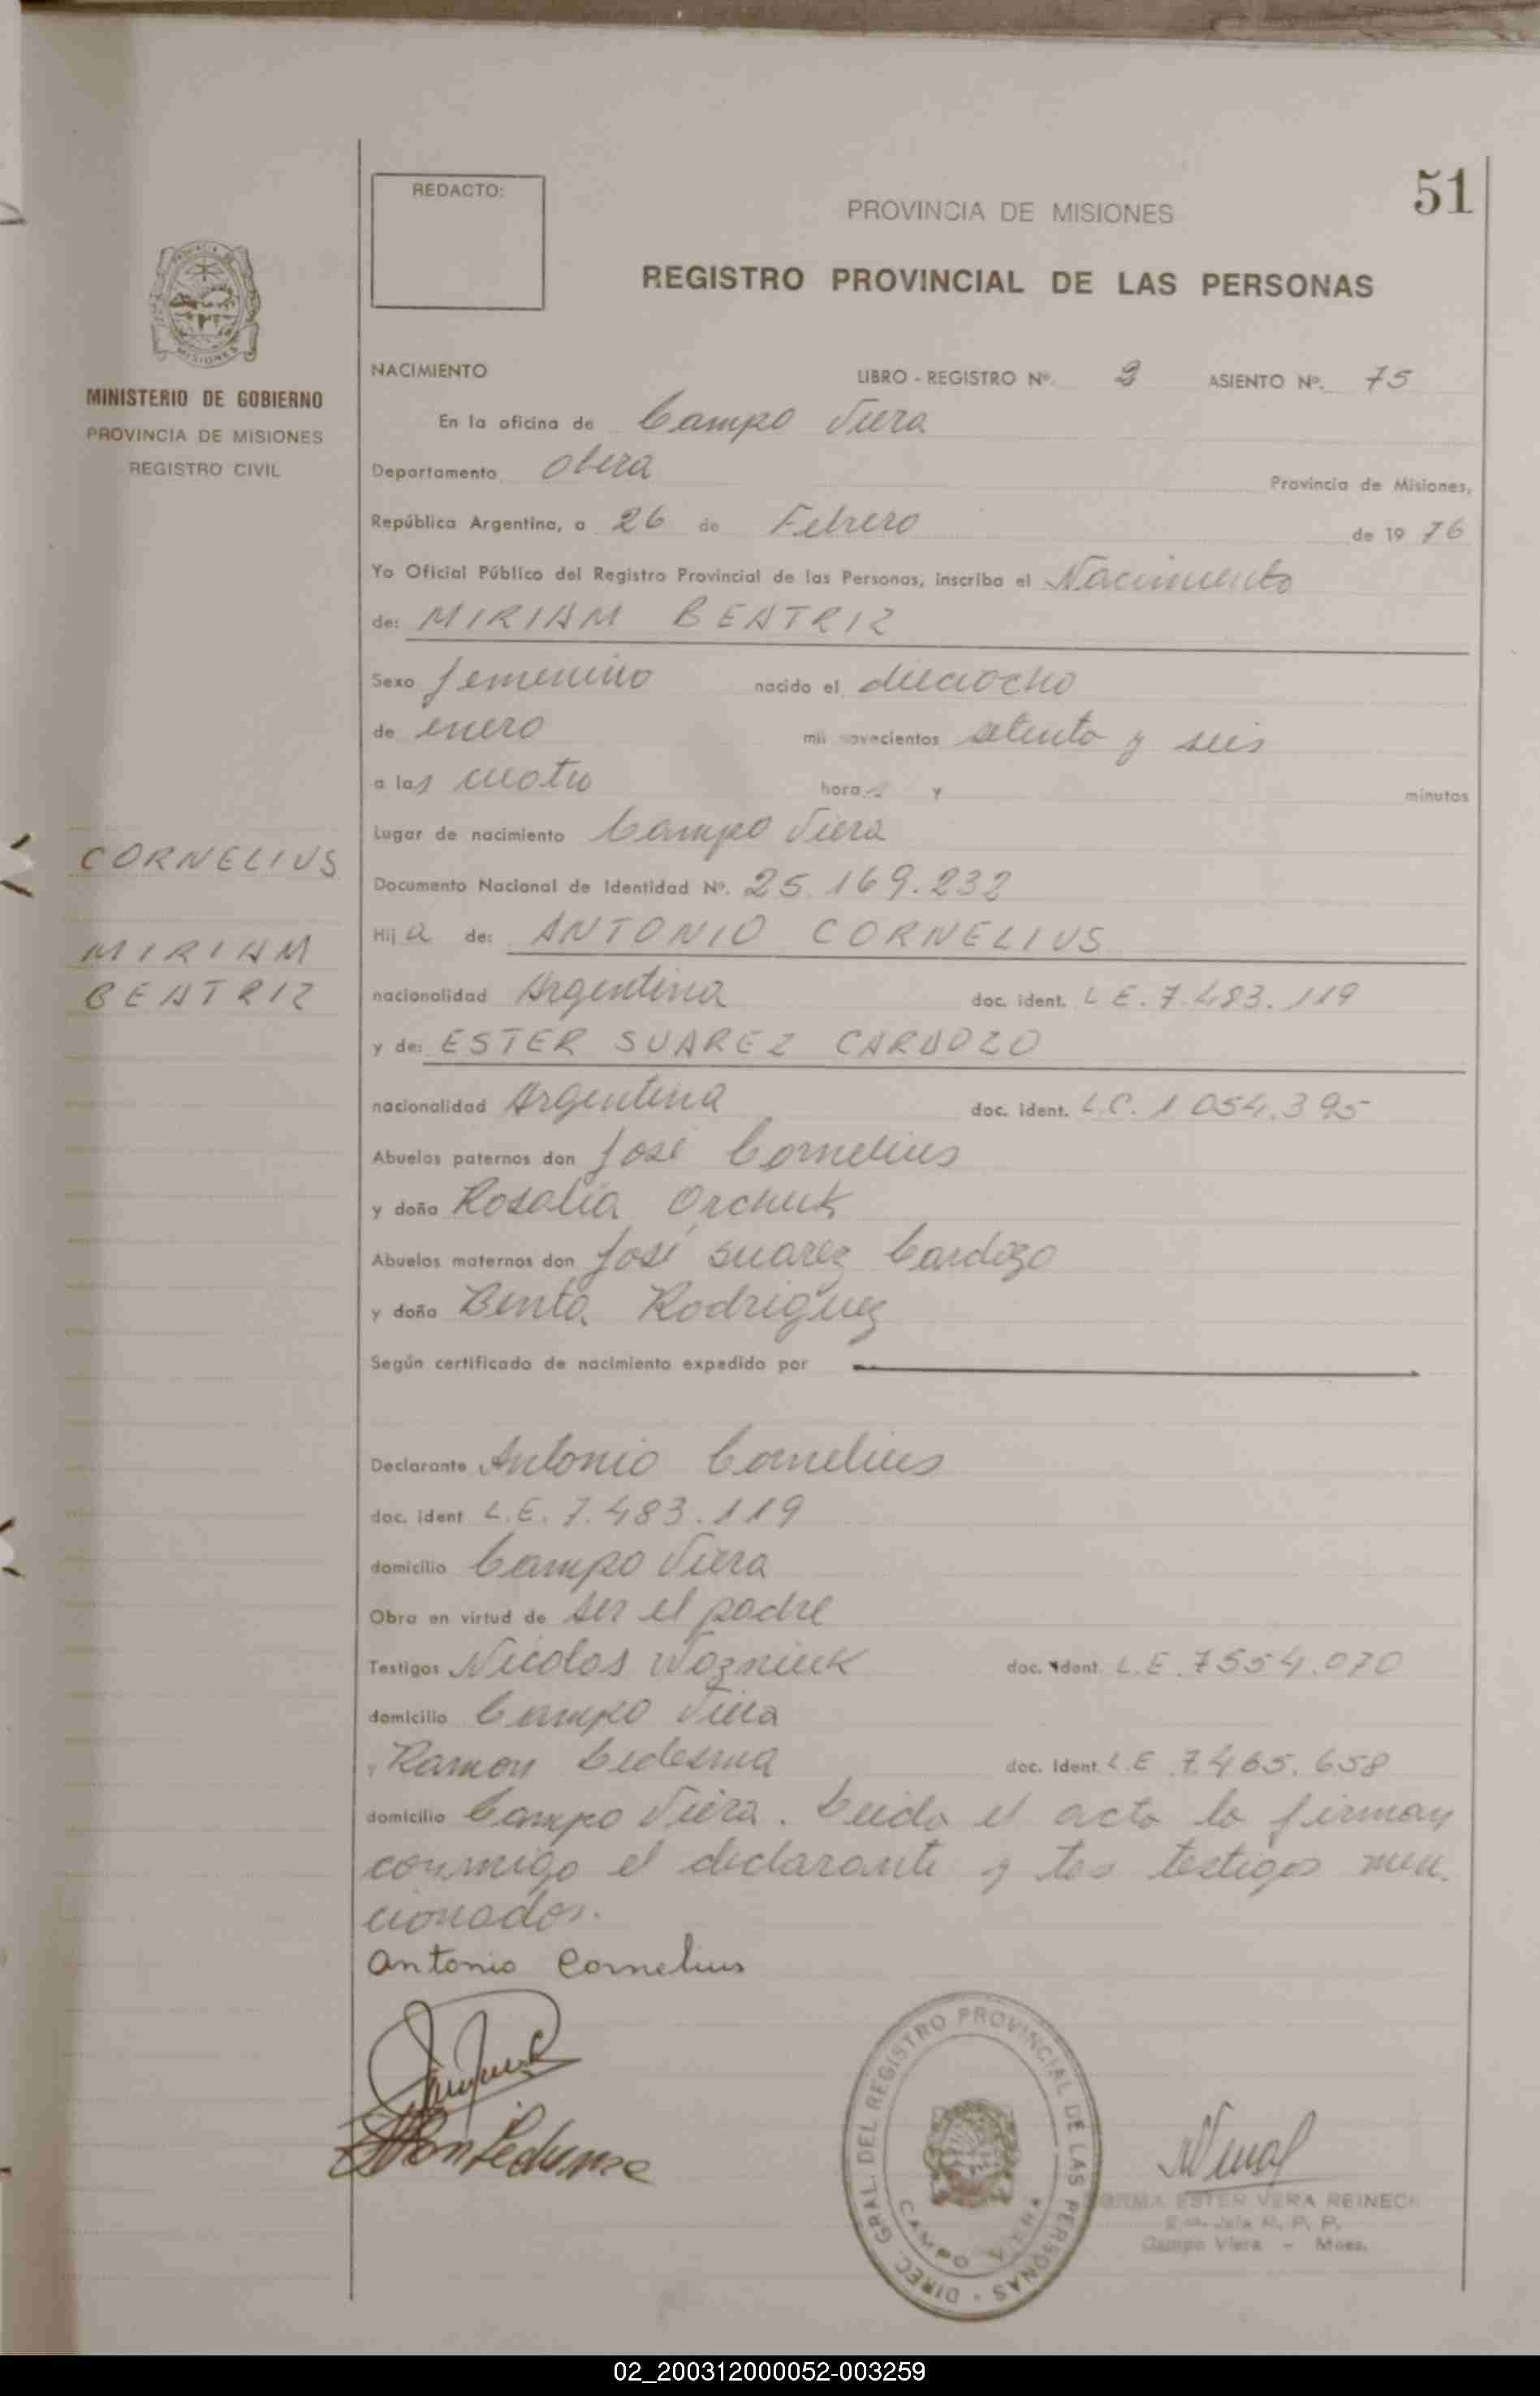 51
REDACTO:
PROVINCIA DE MISIONES
REGISTRO PROVINCIAL DE LAS PERSONAS
MISIONES
MINISTERIO DE GOBIERNO
PROVINCIA DE MISIONES
REGISTRO CIVIL
NACIMIENTO LIBRO - REGISTRO Nº. ASIENTO Nº. 75
En la oficina de Campo Viera
Departamento Obera Provincia de Misiones,
República Argentina, a 26 de Febrero de 19 76
Yo Oficial Público del Registro Provincial de las Personas, inscribo el Nacimiento
de: MIRIAM BEATRIZ
Sexo femenino nacido el dieciocho
de enero mil novecientos setenta y seis
a las cuatro horas y minutos
Lugar de nacimiento Campo Viera
CORNELIUS
MIRIAM
BEATRIZ
Documento Nacional de Identidad Nº. 25.169.232
Hija de: ANTONIO CORNELIUS
nacionalidad Argentina doc. ident. L E. 7.483.119
y de: ESTER SUAREZ CARDOZO
nacionalidad Argentina doc. ident. L.C. 1.054.395
Abuelos paternos don José Cornelius
y doña Rosalia Orchuk
Abuelos maternos don José Suarez Cardozo
y doña Benta Rodriguez
Según certificado de nacimiento expedido por
Declarante Antonio Cornelius
doc. ident L.E. 7.483.119
domicilio Campo Viera
Obra en virtud de ser el padre
Testigos Nicolas Wozniuk doc. ident L.E. 7554.070
domicilio Campo Viera
y Ramon Ledesma doc. ident L.E 7.465.658
domicilio Campo Viera. Leida el acta la firman
conmigo el declarante y los testigos men-
cionados.
Antonio Cornelius
DIREC. GRAL. DEL REGISTRO PROVINCIAL DE LAS PERSONAS
CAMPO VIERA
NORMA ESTER VERA REINECK
Jefa R. P. P.
Campo Viera - Mnes.
02_200312000052-003259